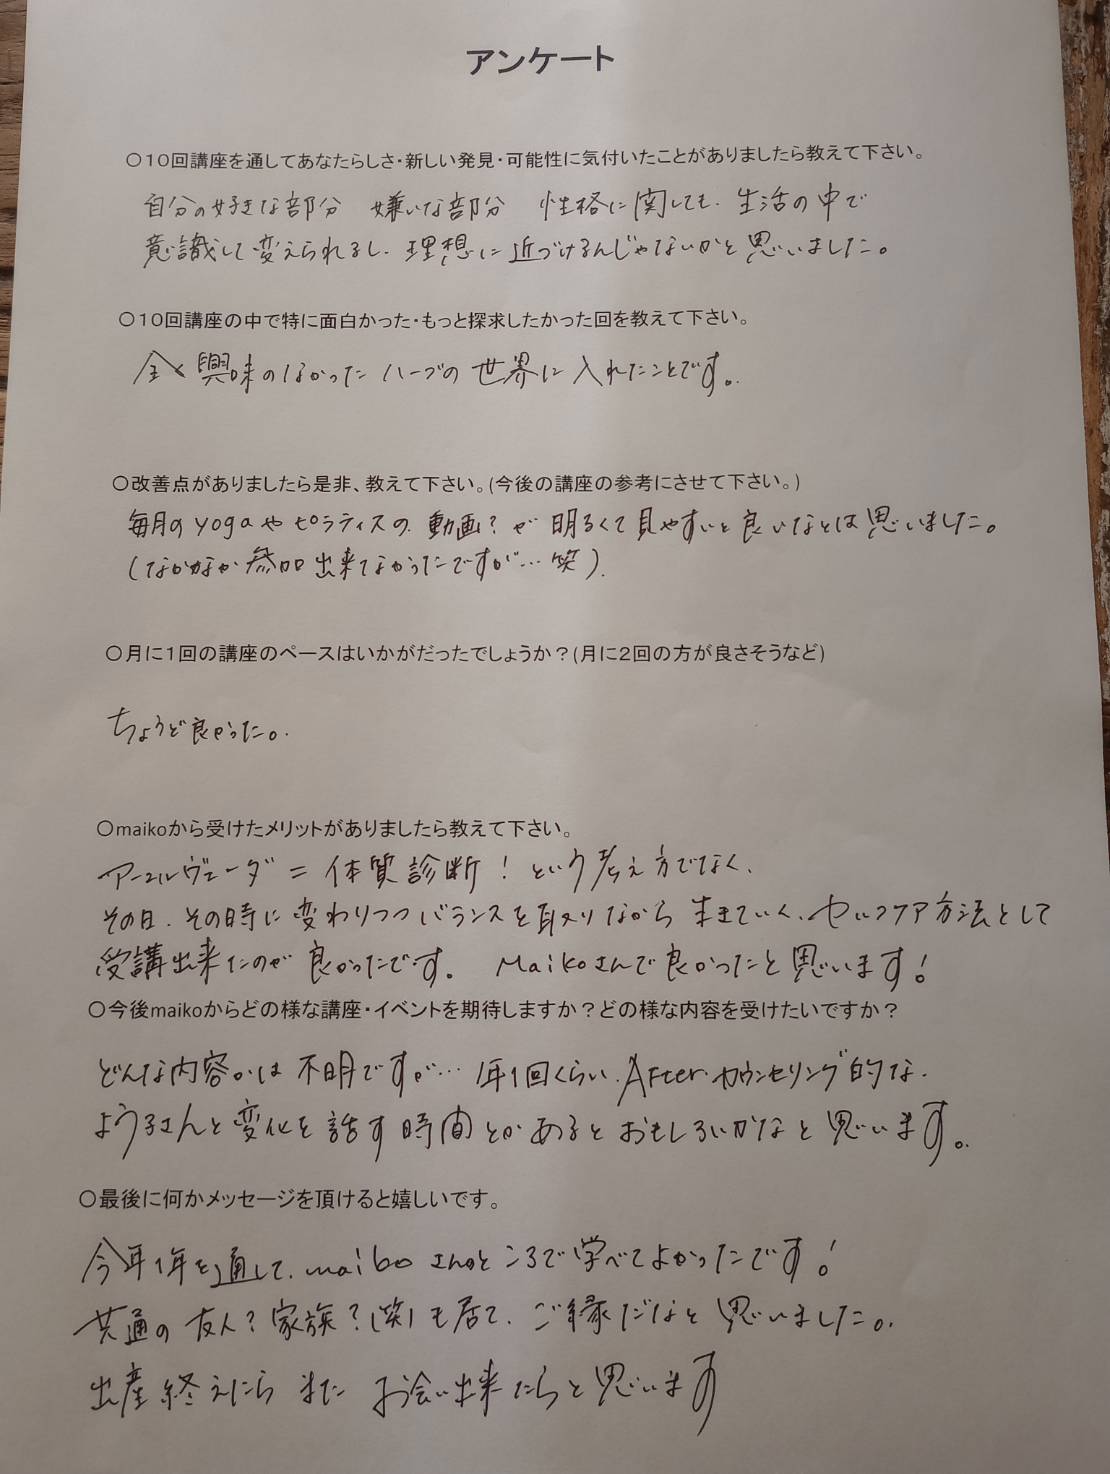 アンケート
○10回講座を通してあなたらしさ・新しい発見・可能性に気付いたことがありましたら教えて下さい。
自分の好きな部分 嫌いな部分 性格に関しても、生活の中で
意識して変えられるし、理想に近づけるんじゃないかと思いました。
○10回講座の中で特に面白かった・もっと探求したかった回を教えて下さい。
全く興味のなかったハーブの世界に入れたことです。
○改善点がありましたら是非、教えて下さい。(今後の講座の参考にさせて下さい。)
毎月のyogaやピラティスの動画?が明るくて見やすいと良いなとは思いました。
(なかなか参加出来てなかったですが…笑)
○月に1回の講座のペースはいかがだったでしょうか?(月に2回の方が良さそうなど)
ちょうど良かった。
○maikoから受けたメリットがありましたら教えて下さい。
アーユルヴェーダ=体質診断!という考え方でなく、
その日、その時に変わりつつバランスを取りながら生きていく、セルフケア方法として
受講出来たのが良かったです。 Maikoさんで良かったと思います!
○今後maikoからどの様な講座・イベントを期待しますか?どの様な内容を受けたいですか?
どんな内容かは不明ですが…1年1回くらい、Afterカウンセリング的な、
ようこさんと変化を話す時間とかあるとおもしろいかなと思います。
○最後に何かメッセージを頂けると嬉しいです。
今年1年を通して、maikoさんのところで学べてよかったです!
共通の友人?家族?(笑)も居て、ご縁だなと思いました。
出産終えたらまたお会い出来たらと思います